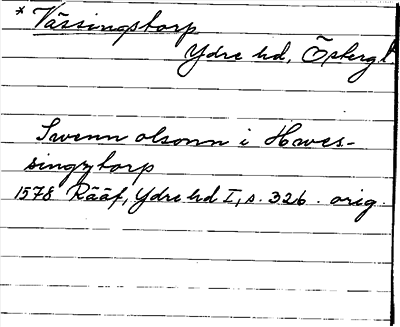 * Vässingstorp
Ydre hd, Östergl.
Swenn olsonn i Hwes-
singztorp
1578 Rääf, Ydre hd I, s. 326. orig.